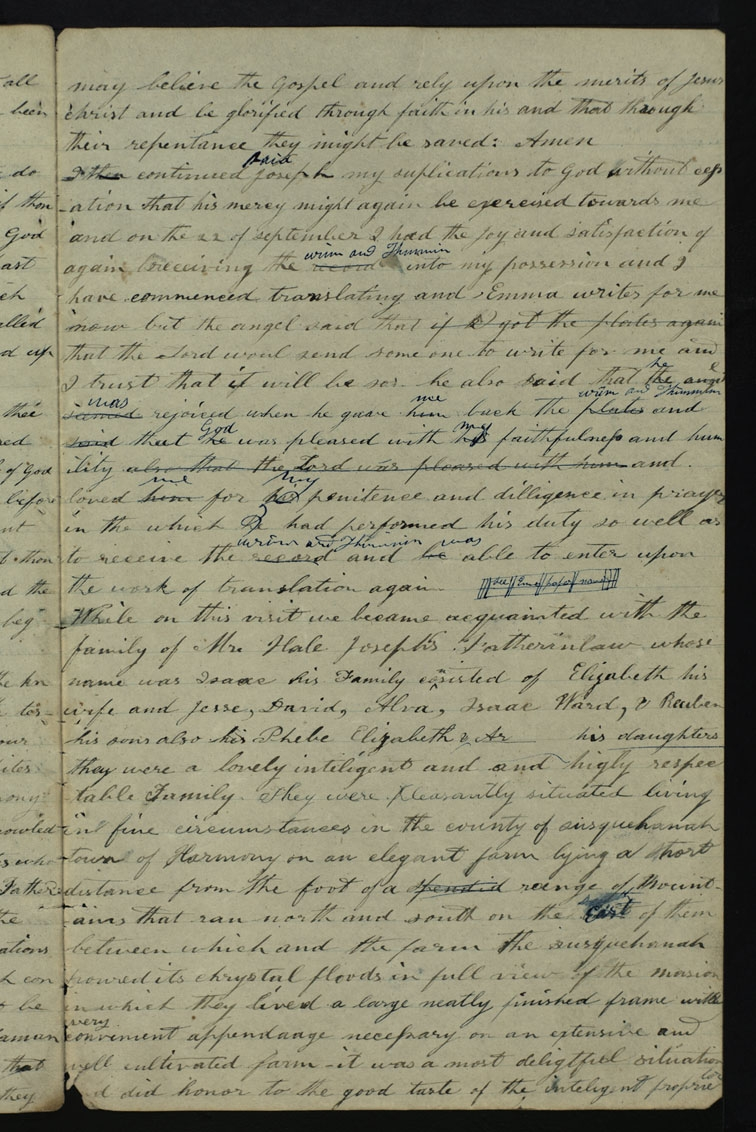 may believe the Gospel and rely upon the merits of Jesus
christ and be glorified through faith in his and that through
their repentance they might be saved: Amen
said
I then continued Joseph my suplications to God without cess
-ation that his mercy might again be exercised towards me
and on the 22 of september I had the joy and satisfaction of
urim and Thummin
again receiving the record into my possession and I
have commenced translating and Emma writes for me
now but the angel said that if I got the plates again
that the Lord woul send some one to write for me and
I trust that it will be so. he also said that the angel
he
was me urim and Thummim
seemed rejoiced when he gave him back the plates and
God my
said that he was pleased with his faithfulness and hum
ility also that the Lord was pleased with him and
me my
loved him for his penitence and dilligence in prayer
in the which I had performed his duty so well as
urim and Thummim was
to receive the record and be able to enter upon
the work of translation again
While on this visit we became acquainted with the
family of Mr Hale Joseph's Fatherinlaw whose
name was Isaac his Family consisted of Elizabeth his
wife and Jesse, David, Alva, Isaac Ward, & Reuben
his sons also his Phebe Elizabeth & Ar his daughters
they were a lovely inteligent and and higly respec
table Family. They were pleasantly situated living
in fine circumstances in the county of susquehanah
town of Harmony on an elegant farm lying a short
distance from the foot of a spendid range of Mount-
-ains that ran north and south on the East of them
between which and the farm the susquehanah
poured its chrystal floods in full view of the mansion
in which they lived a large neatly finished frame with
every
convenient appendaage necessary on an extensive and
well cultivated farm - it was a most deligtful situation
did honor to the good taste of the inteligent proprie
tor
all
been
do
if thou
God
ast
called
up
thee
of God
before
thou
the
beg
that
they